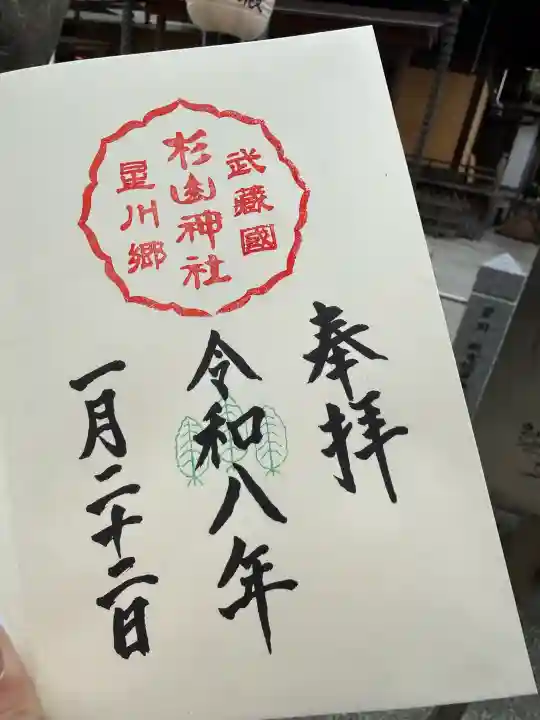 武蔵國
杉山神社
星川郷
奉拝
令和八年
一月二十二日